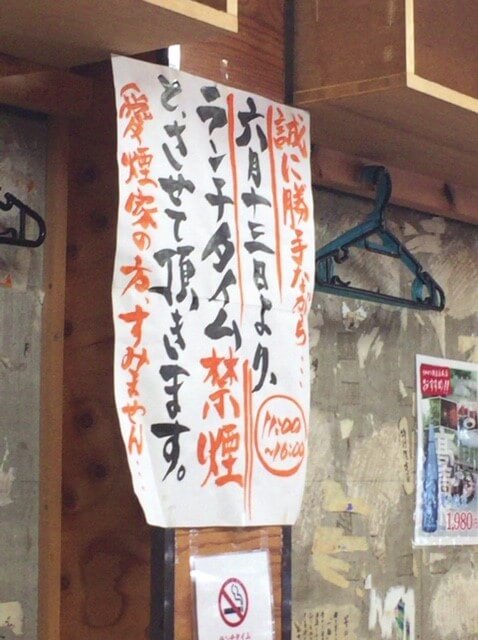 誠に勝手ながら…
六月十三日より、
11:00
~16:00
ランチタイム禁煙
と、させて頂きます。
愛煙家の方、すみません…
おすすめ!!
1,980
ランチタイム